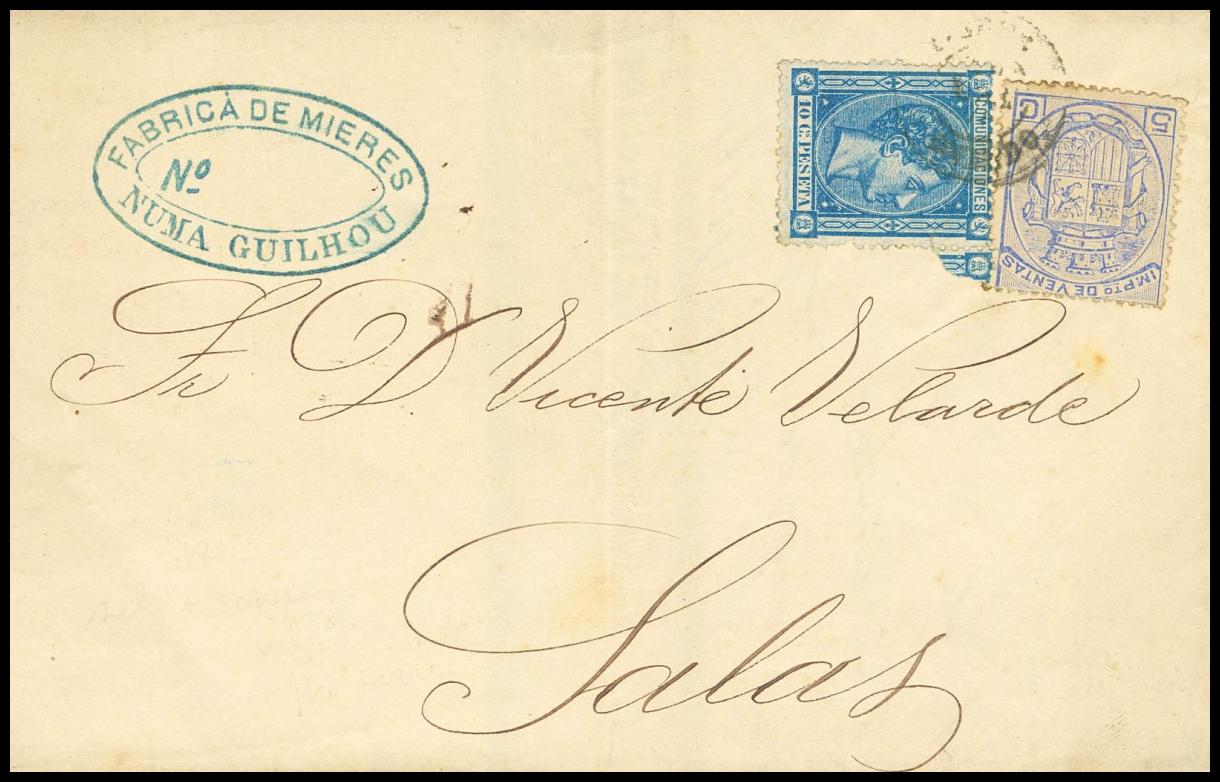 FABRICA DE MIERES
Nº
NUMA GUILHOU
COMUNICACIONES
10 C. PESETA
5 C
IMPTO DE VENTAS
Sr D Vicente Velarde
Salas